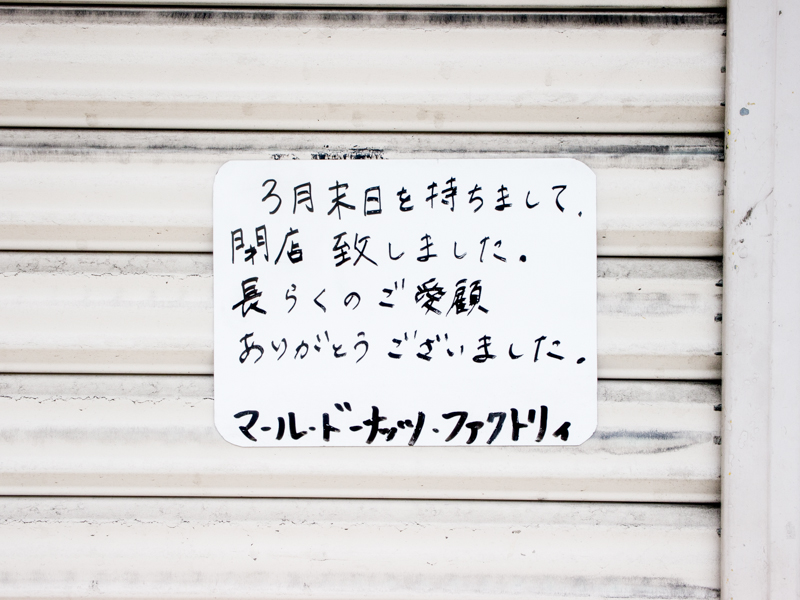 3月末日を持ちまして、
閉店 致しました。
長らくのご愛顧
ありがとうございました。
マール・ドーナッツ・ファクトリィ